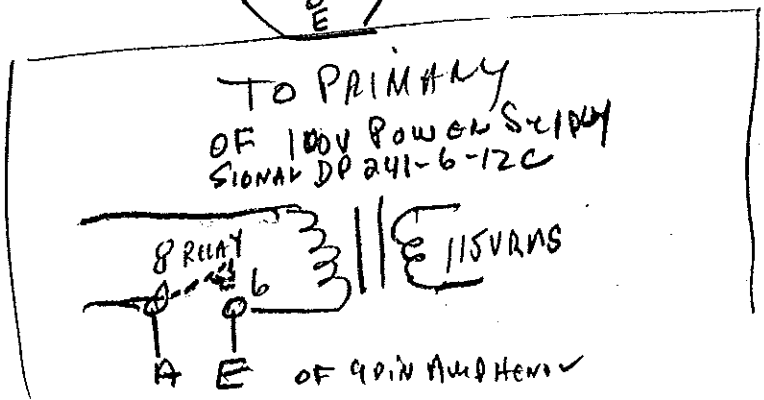 E
TO PRIMARY
OF 100V POWER SUPPLY
SIGNAL DP 241-6-12C
8 RELAY
6
115VRMS
A E OF 9 PIN AMPHENOL